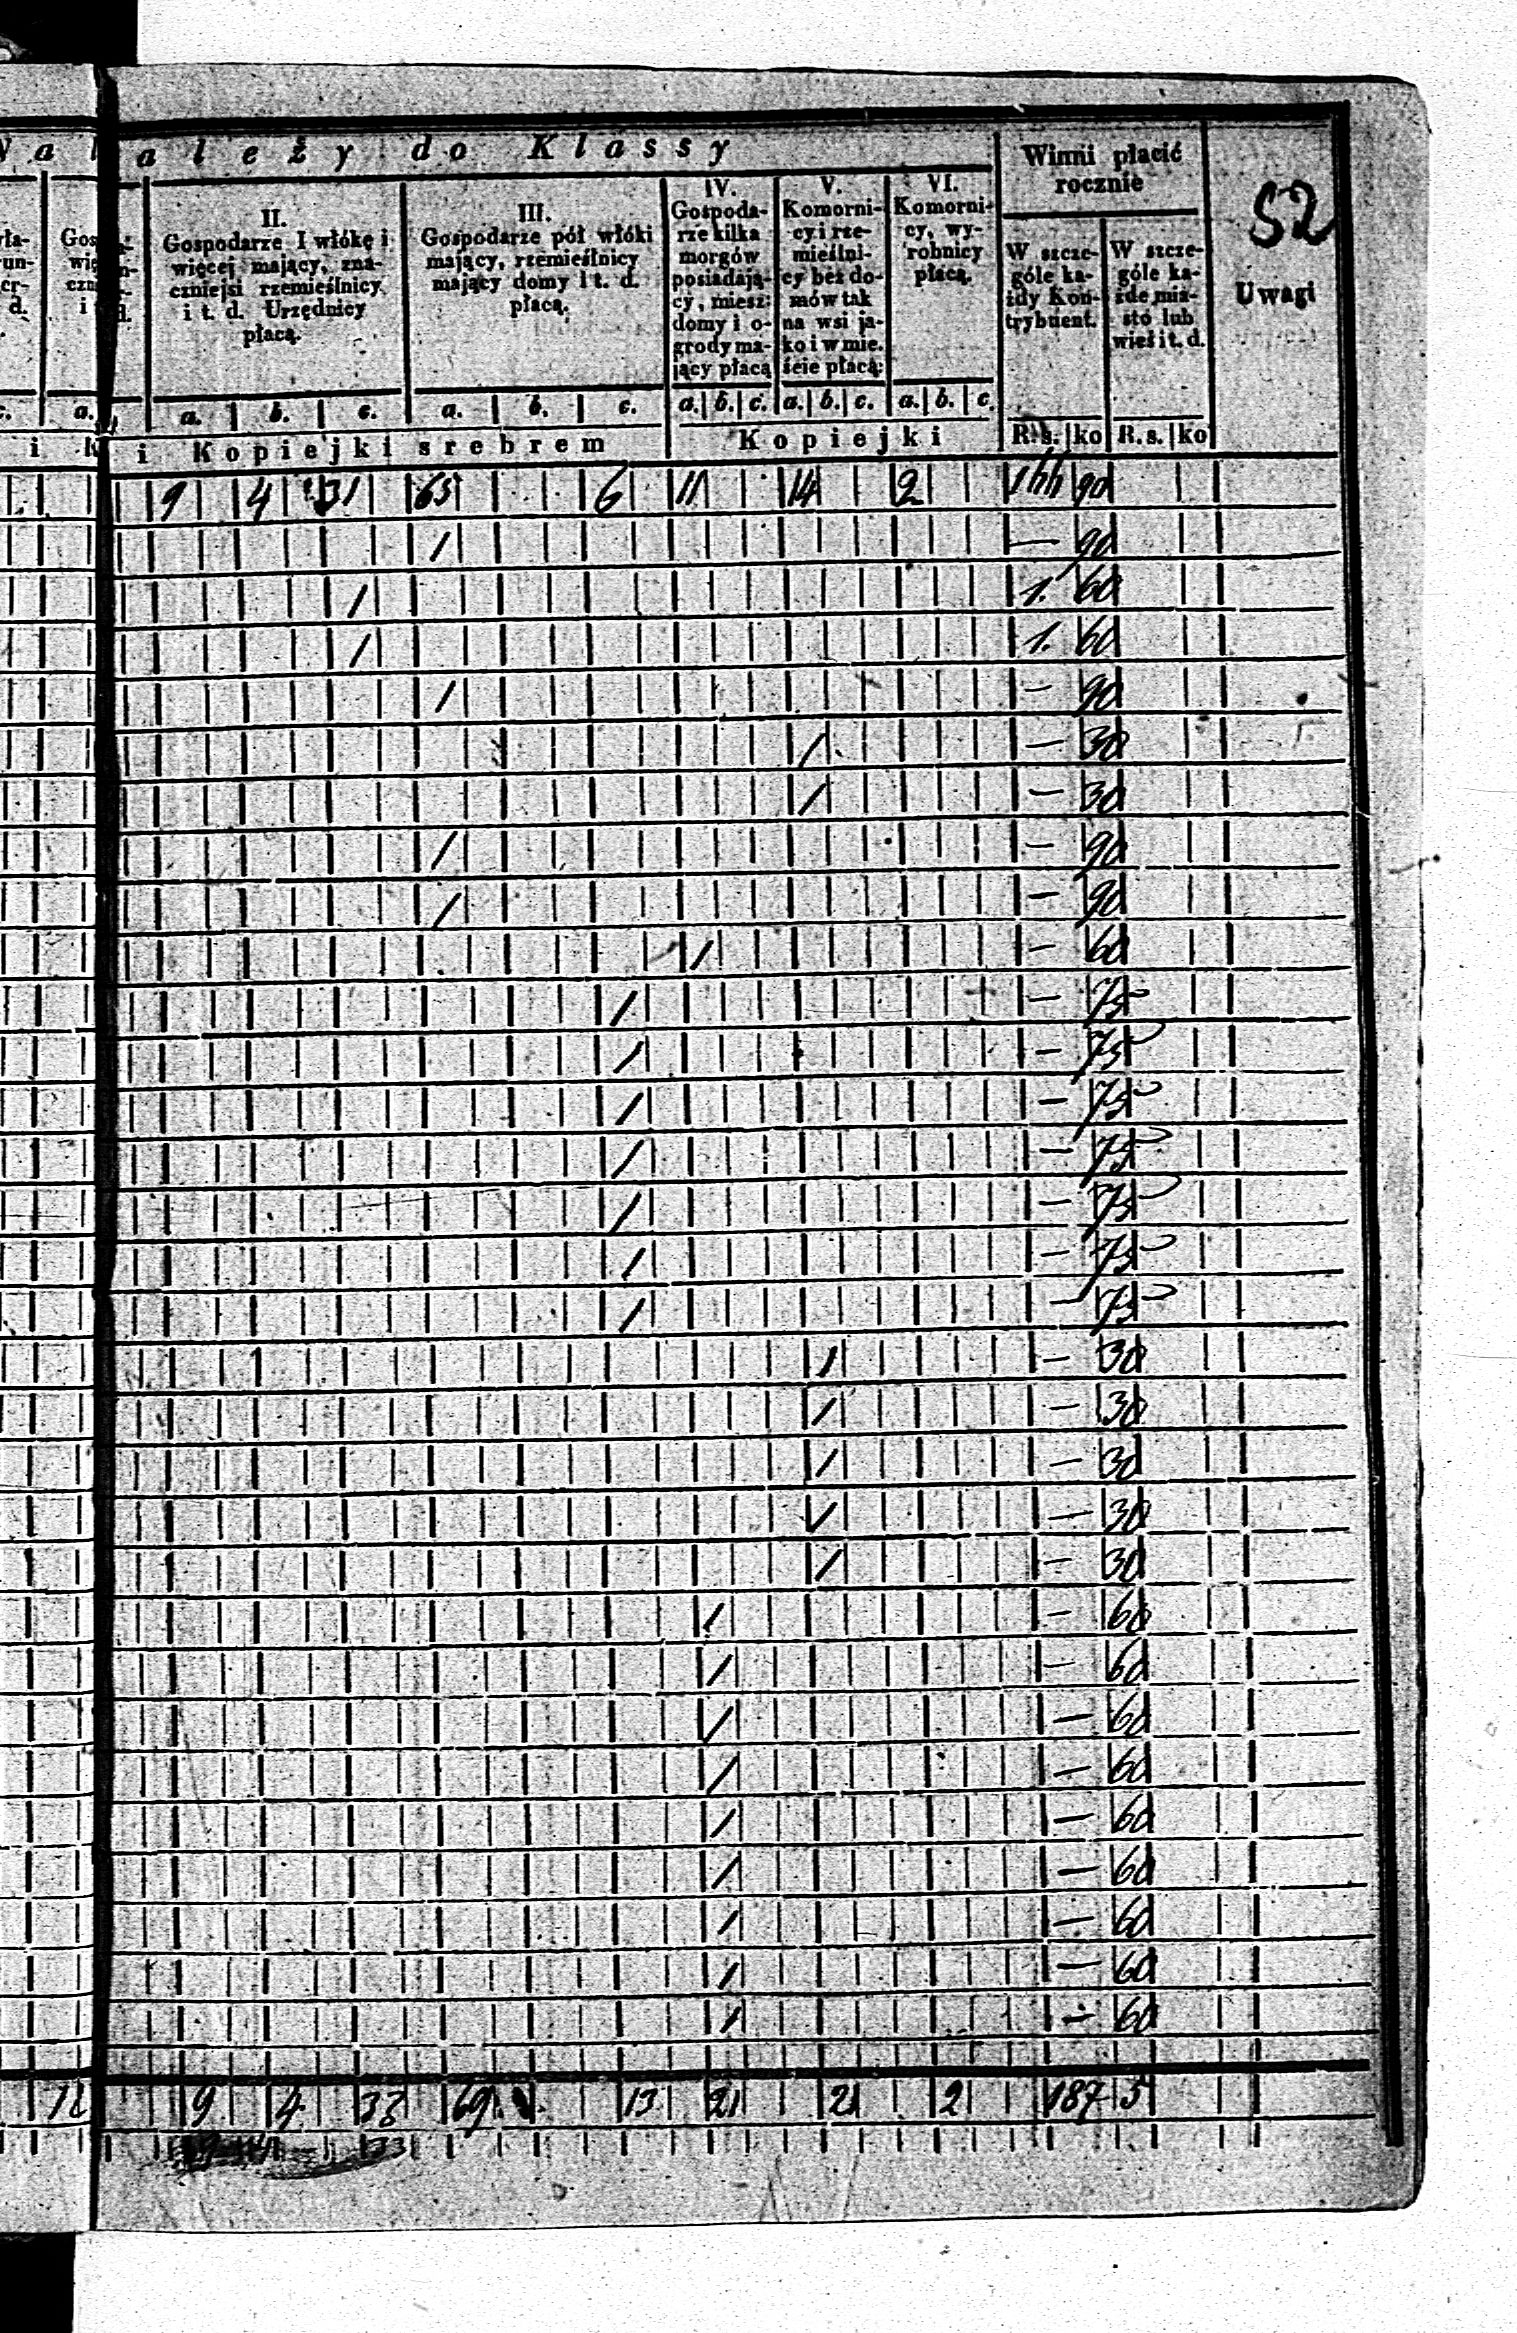 a l e ż y d o K l a s s y
Winni płacić
rocznie
52
Uwagi
II.
Gospodarze I włókę i
więcej mający, zna-
czniejsi rzemieślnicy
i t. d. Urzędnicy
płacą.
III.
Gospodarze pół włóki
mający, rzemieślnicy
mający domy i t. d.
płacą.
IV.
Gospoda-
rze kilka
morgów
posiadają-
cy, miesz:
domy i o-
grody ma-
jący płacą
V.
Komorni-
cy i rze-
mieślni-
cy bez do-
mów tak
na wsi ja-
ko i w mie.
ście płacą:
VI.
Komorni-
cy, wy-
robnicy
płacą.
W szcze-
góle ka-
żdy Kon-
trybuent.
W szcze-
góle ka-
żde mia-
sto lub
wieś i t. d.
a. b. c. a. b. c. a. b. c. a. b. c. a. b. c.
i Kopiejki srebrem Kopiejki R. s. ko R. s. ko
9 4 31 65 6 11 14 2 166 90
/ — 90
/ 1. 60
/ 1. 60
/ — 90
/ — 30
/ — 30
/ — 90
/ — 90
/ — 60
/ — 75
/ — 75
/ — 75
/ — 75
/ — 75
/ — 75
/ — 75
/ — 30
/ — 30
/ — 30
/ — 30
/ — 30
/ — 60
/ — 60
/ — 60
/ — 60
/ — 60
/ — 60
/ — 60
/ — 60
/ — 60
9 4 33 69 13 21 21 2 187 5